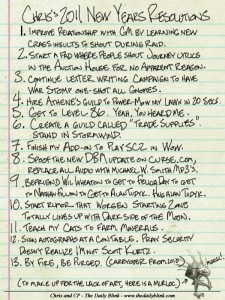 Chris's 2011 New Years Resolutions
1. Improve relationship with GM by learning new
crass insults to shout during raid.
2. Start a fad where people shout Journey lyrics
in the Auction House for no apparent reason.
3. Continue letter writing campaign to have
War Stomp one-shot all Gnomes.
4. Hire Athene's guild to power-mow my lawn in 20 secs.
5. Get to Level 86. Yeah, you heard me.
6. Create a guild called "Trade Supplies".
Stand in Stormwind.
7. Finish my add-on to play SC2 in WoW.
8. Spoof the new DBM update on Curse.com,
replace all audio with Michael W. Smith MP3's.
9. Befriend Wil Wheaton to get to Felicia Day to get
to Nathan Fillion to get to Alan Tudyk. Hug Alan Tudyk.
10. Start rumor that Worgen Starting Zone
totally lines up with Dark Side of the Moon.
11. Teach my cats to farm minerals.
12. Sign autographs at a con table. Pray security
doesn't realize I'm not Scott Kurtz.
13. By fire, be purged. (Carryover from 2010)
(To make up for the lack of art, here is a murloc.)
Chris and CP - The Daily Blink - www.thedailyblink.com